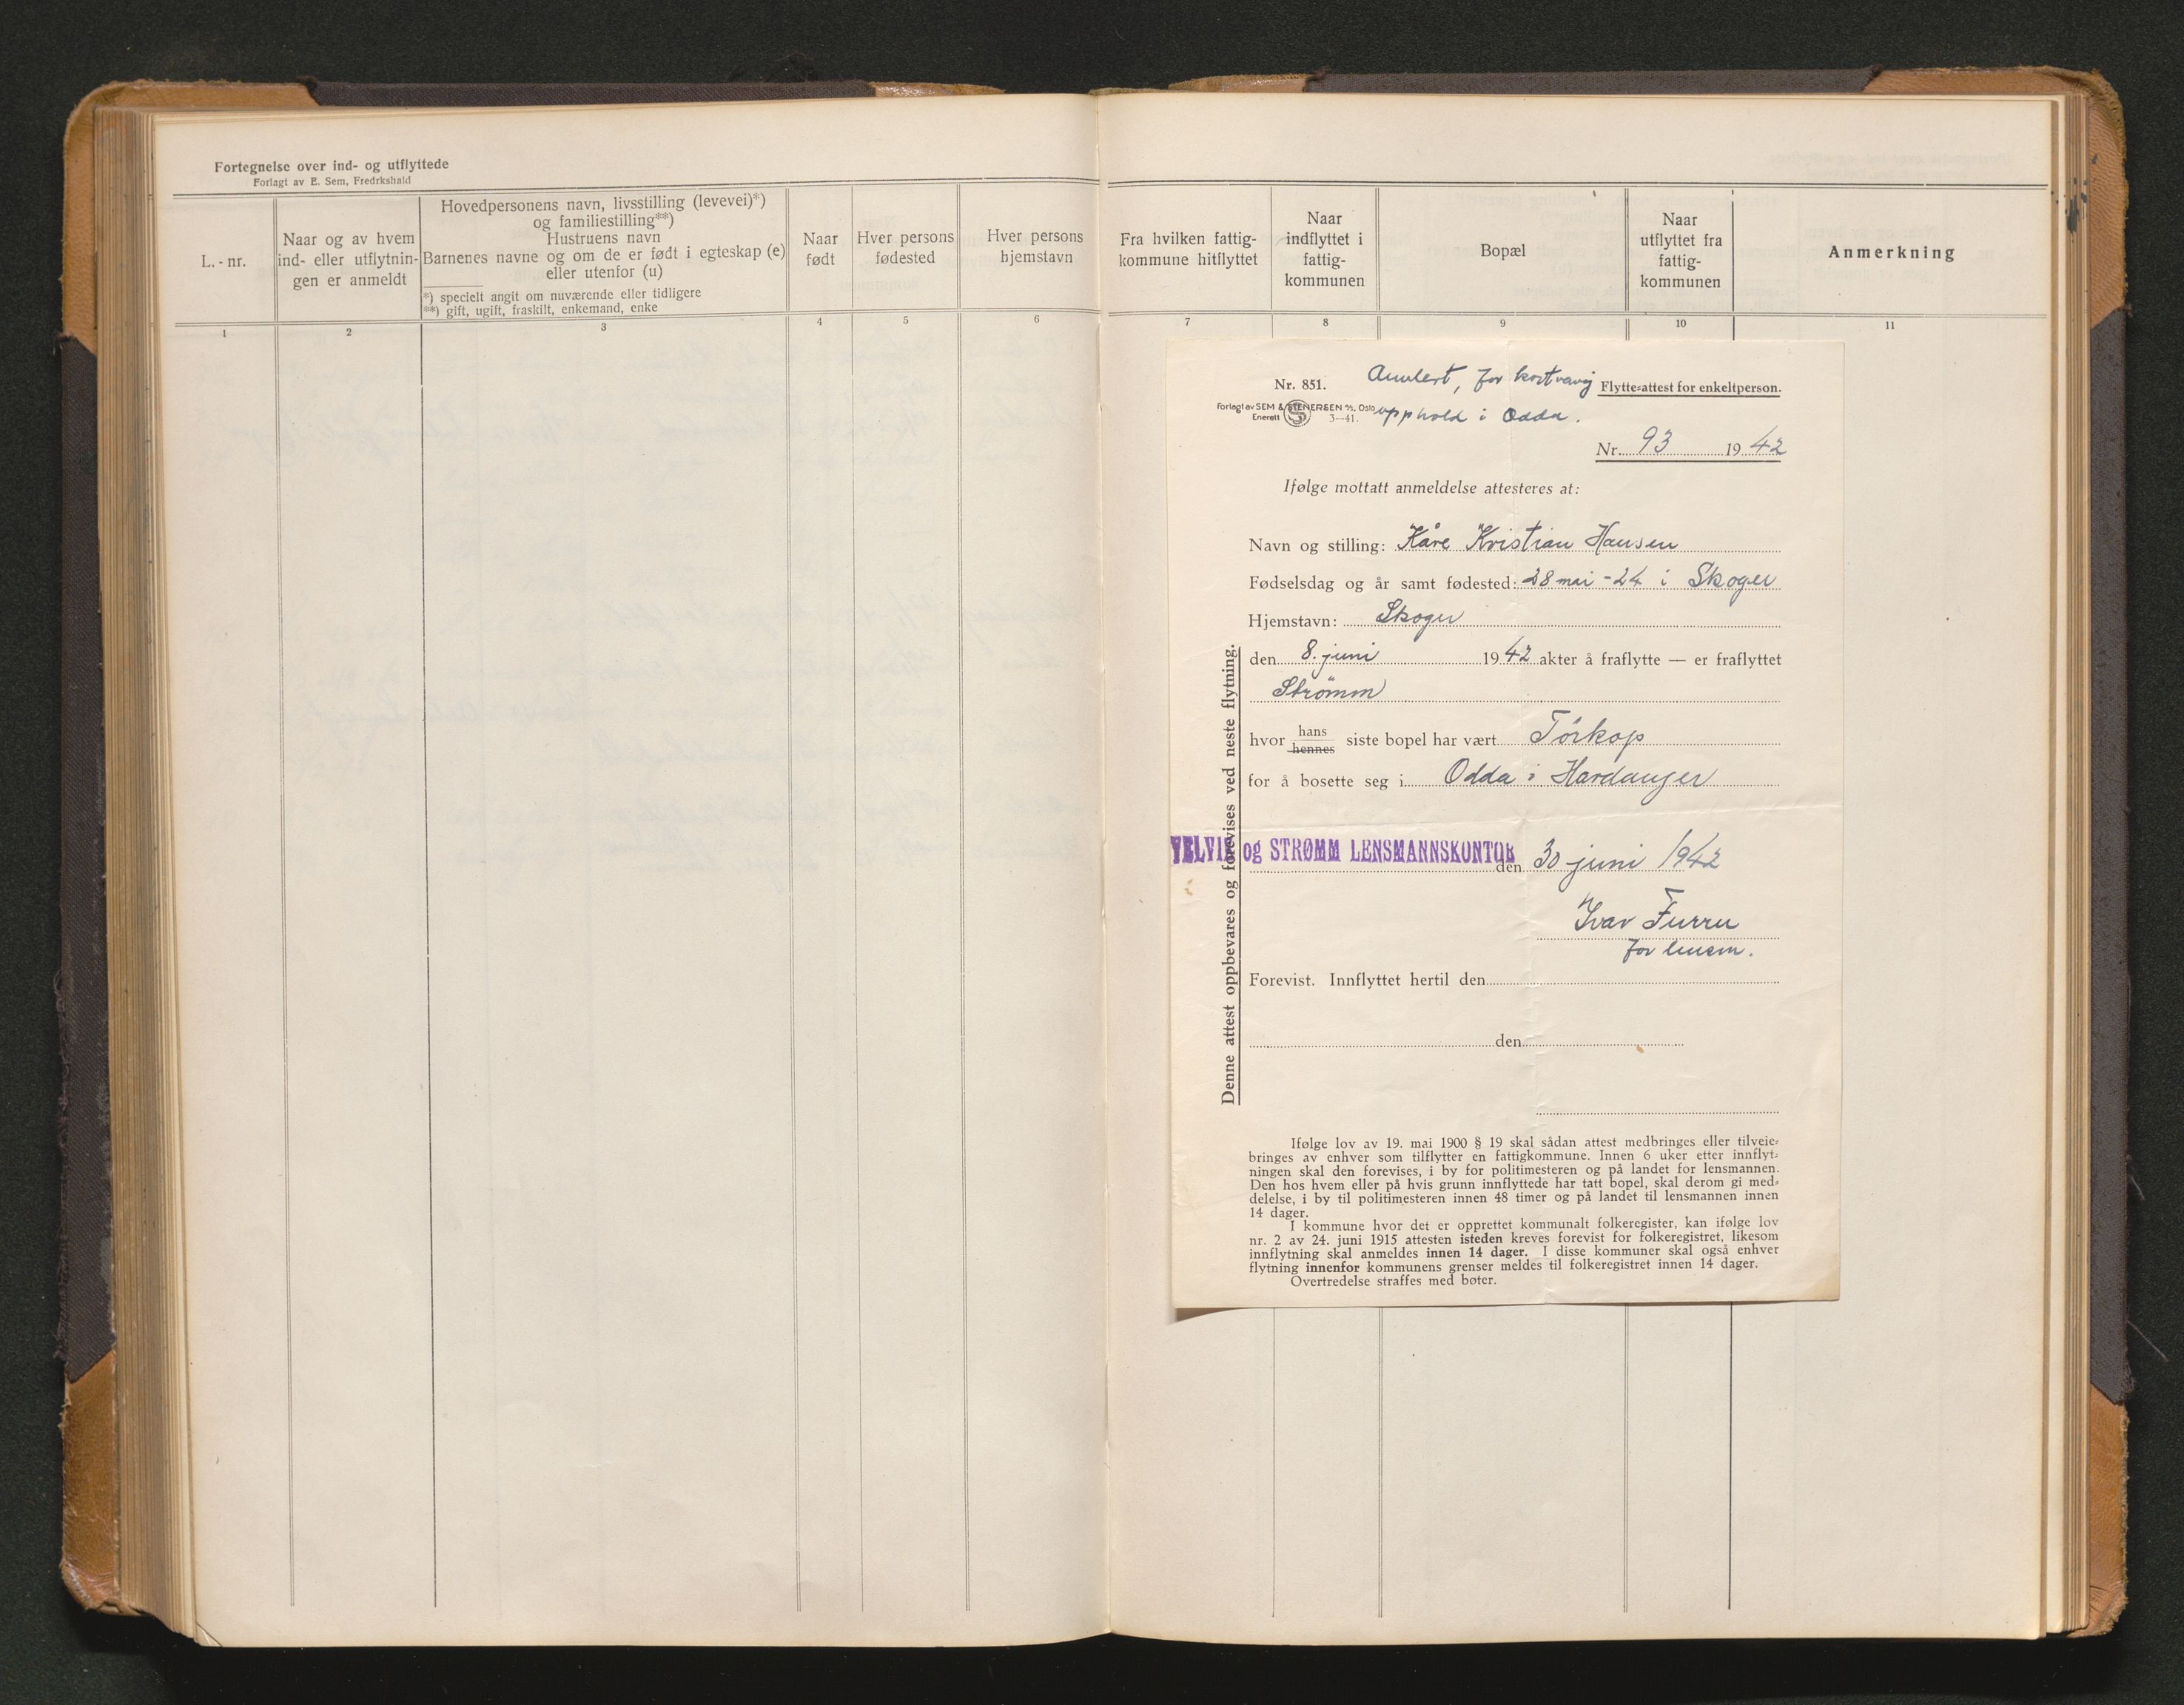 Fortegnelse over ind- og utflyttede
Forlagt av E. Sem, Fredrkshald
L.-nr.
Naar og av hvem
ind- eller utflytnin-
gen er anmeldt
Hovedpersonens navn, livsstilling (levevei)*)
og familiestilling**)
Hustruens navn
Barnenes navne og om de er født i egteskap (e)
eller utenfor (u)
*) specielt angit om nuværende eller tidligere
**) gift, ugift, fraskilt, enkemand, enke
Naar
født
Hver persons
fødested
Hver persons
hjemstavn
1 2 3 4 5 6
Fra hvilken fattig-
kommune hitflyttet
Naar
indflyttet i
fattig-
kommunen
Bopæl
Naar
utflyttet fra
fattig-
kommunen
Anmerkning
7 8 9 10 11
Nr. 851.
Annlert, for kortvarig
Flytte-attest for enkeltperson.
Forlagt av SEM & STENERSEN A/S. Oslo
Enerett S 3-41.
opphold i Odda.
Nr. 93 1942
Ifølge mottatt anmeldelse attesteres at:
Navn og stilling: Kåre Kristian Hansen
Fødselsdag og år samt fødested: 28 mai -24 i Skoger
Hjemstavn: Skoger
den 8. juni 1942 akter å fraflytte — er fraflyttet
Strømm
hvor hans
hennes siste bopel har vært Tørkop
for å bosette seg i Odda i Hardanger
SVELVIK og STRØMM LENSMANNSKONTOR
den 30 juni 1942
Ivar Furru
for lensm.
Forevist. Innflyttet hertil den
den
Denne attest oppbevares og forevises ved neste flytning.
Ifølge lov av 19. mai 1900 § 19 skal sådan attest medbringes eller tilveie-
bringes av enhver som tilflytter en fattigkommune. Innen 6 uker etter innflyt-
ningen skal den forevises, i by for politimesteren og på landet for lensmannen.
Den hos hvem eller på hvis grunn innflyttede har tatt bopel, skal derom gi med-
delelse, i by til politimesteren innen 48 timer og på landet til lensmannen innen
14 dager.
I kommune hvor det er opprettet kommunalt folkeregister, kan ifølge lov
nr. 2 av 24. juni 1915 attesten isteden kreves forevist for folkeregistret, likesom
innflytning skal anmeldes innen 14 dager. I disse kommuner skal også enhver
flytning innenfor kommunens grenser meldes til folkeregistret innen 14 dager.
Overtredelse straffes med bøter.